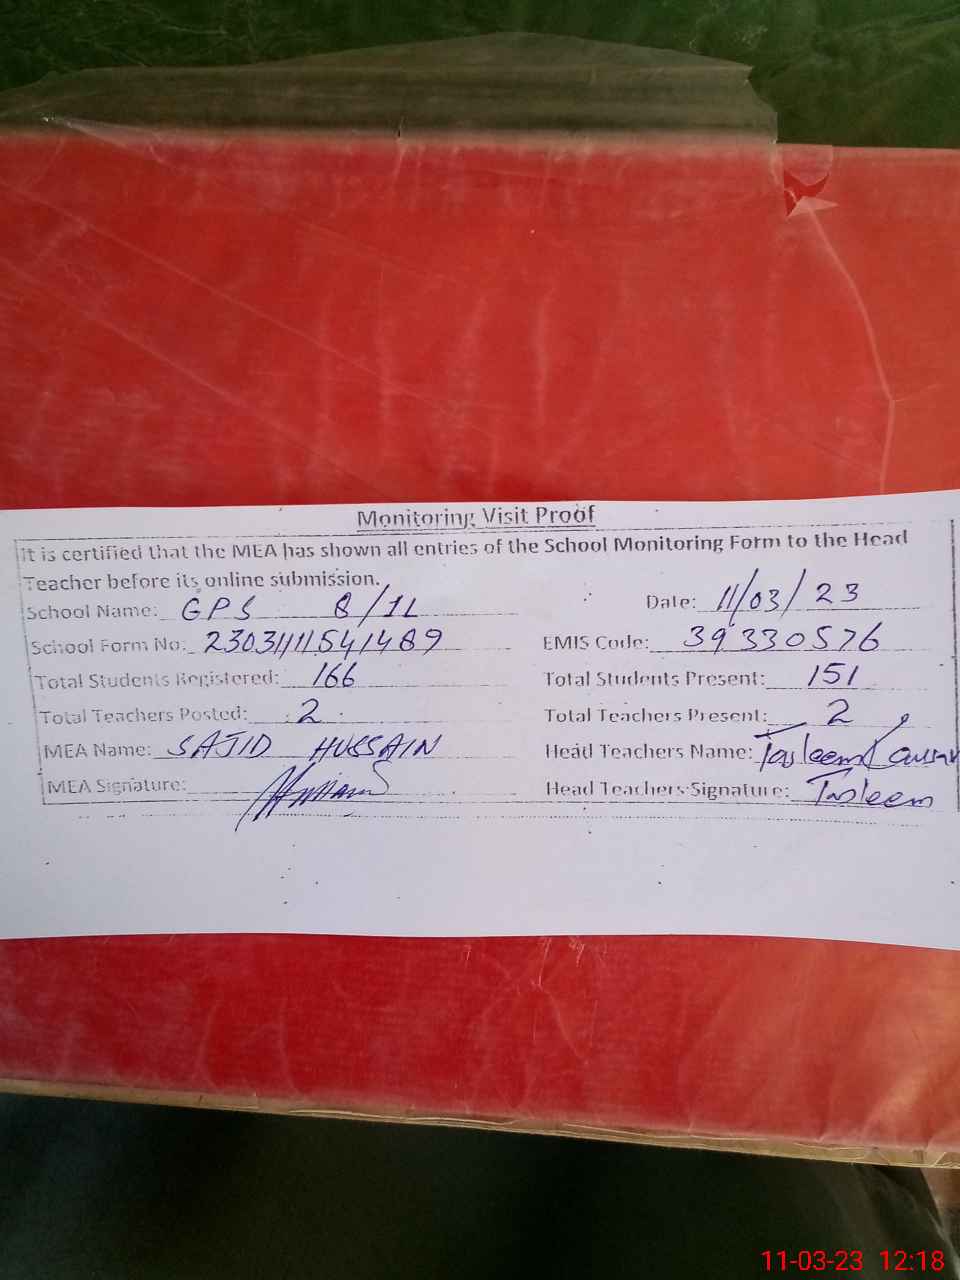 Monitoring Visit Proof
It is certified that the MEA has shown all entries of the School Monitoring Form to the Head
Teacher before its online submission.
School Name: GPS 8/1L Date: 11/03/23
School Form No: 2303111541489 EMIS Code: 39330576
Total Students Registered: 166 Total Students Present: 151
Total Teachers Posted: 2 Total Teachers Present: 2
MEA Name: SAJID HUSSAIN Head Teachers Name: Tasleem Kausar
MEA Signature: Head Teachers Signature: Tasleem
11-03-23 12:18